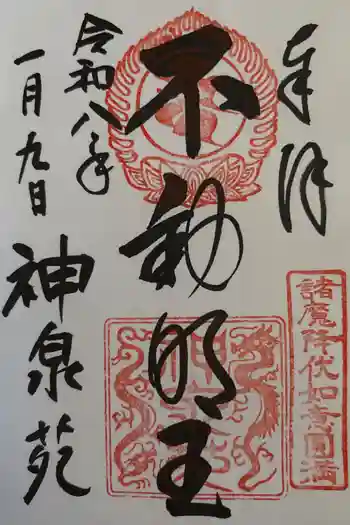 奉拝
諸魔降伏如意圓満
不動明王
令和八年
一月九日
神泉苑